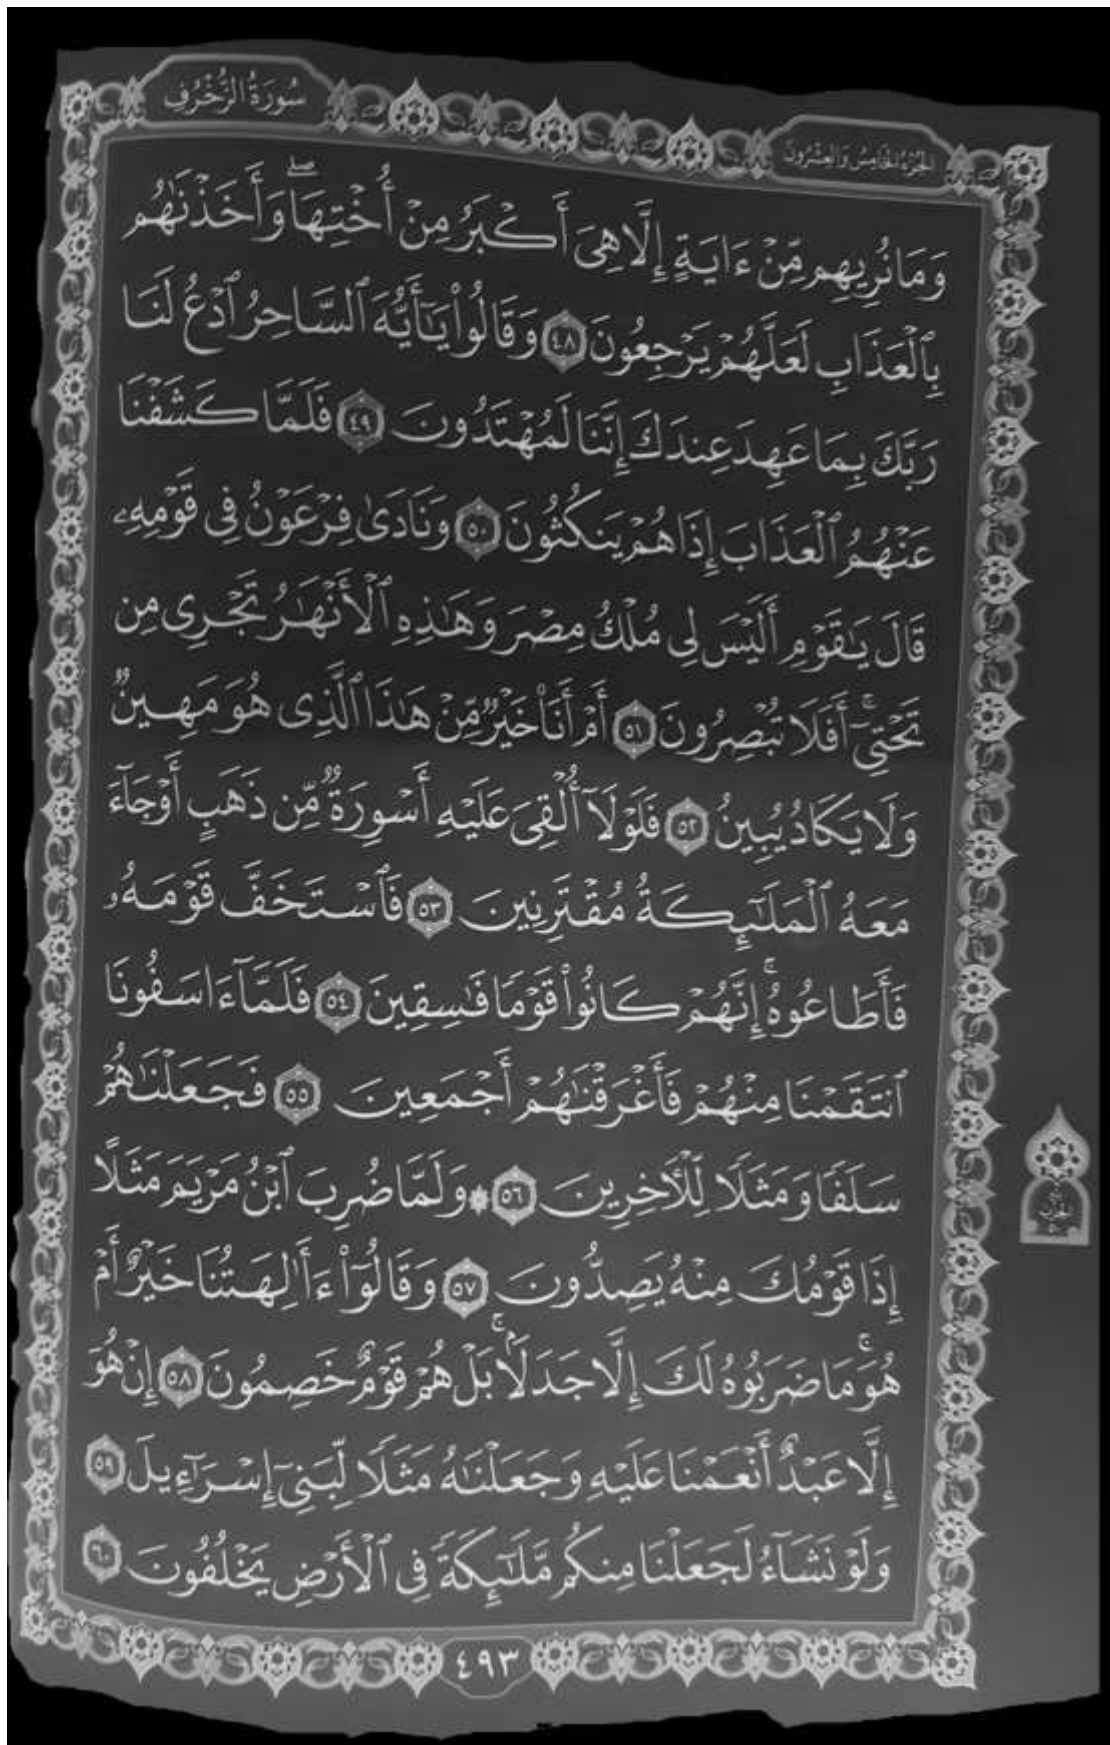 الجزء الخامس والعشرون
سُورَةُ الزُّخْرُفِ
وَمَا نُرِيهِم مِّنْ ءَايَةٍ إِلَّا هِىَ أَكْبَرُ مِنْ أُخْتِهَا ۖ وَأَخَذْنَٰهُم
بِٱلْعَذَابِ لَعَلَّهُمْ يَرْجِعُونَ ٤٨ وَقَالُوا۟ يَٰٓأَيُّهَ ٱلسَّاحِرُ ٱدْعُ لَنَا
رَبَّكَ بِمَا عَهِدَ عِندَكَ إِنَّنَا لَمُهْتَدُونَ ٤٩ فَلَمَّا كَشَفْنَا
عَنْهُمُ ٱلْعَذَابَ إِذَا هُمْ يَنكُثُونَ ٥٠ وَنَادَىٰ فِرْعَوْنُ فِى قَوْمِهِۦ
قَالَ يَٰقَوْمِ أَلَيْسَ لِى مُلْكُ مِصْرَ وَهَٰذِهِ ٱلْأَنْهَٰرُ تَجْرِى مِن
تَحْتِىٓ ۚ أَفَلَا تُبْصِرُونَ ٥١ أَمْ أَنَا۠ خَيْرٌ مِّنْ هَٰذَا ٱلَّذِى هُوَ مَهِينٌ
وَلَا يَكَادُ يُبِينُ ٥٢ فَلَوْلَآ أُلْقِىَ عَلَيْهِ أَسْوِرَةٌ مِّن ذَهَبٍ أَوْ جَآءَ
مَعَهُ ٱلْمَلَٰٓئِكَةُ مُقْتَرِنِينَ ٥٣ فَٱسْتَخَفَّ قَوْمَهُۥ
فَأَطَاعُوهُ ۚ إِنَّهُمْ كَانُوا۟ قَوْمًا فَٰسِقِينَ ٥٤ فَلَمَّآ ءَاسَفُونَا
ٱنتَقَمْنَا مِنْهُمْ فَأَغْرَقْنَٰهُمْ أَجْمَعِينَ ٥٥ فَجَعَلْنَٰهُمْ
سَلَفًا وَمَثَلًا لِّلْءَاخِرِينَ ٥٦ ۞ وَلَمَّا ضُرِبَ ٱبْنُ مَرْيَمَ مَثَلًا
إِذَا قَوْمُكَ مِنْهُ يَصِدُّونَ ٥٧ وَقَالُوٓا۟ ءَأَٰلِهَتُنَا خَيْرٌ أَمْ
هُوَ ۚ مَا ضَرَبُوهُ لَكَ إِلَّا جَدَلًۢا ۚ بَلْ هُمْ قَوْمٌ خَصِمُونَ ٥٨ إِنْ هُوَ
إِلَّا عَبْدٌ أَنْعَمْنَا عَلَيْهِ وَجَعَلْنَٰهُ مَثَلًا لِّبَنِىٓ إِسْرَٰٓءِيلَ ٥٩
وَلَوْ نَشَآءُ لَجَعَلْنَا مِنكُم مَّلَٰٓئِكَةً فِى ٱلْأَرْضِ يَخْلُفُونَ ٦٠
٤٩٣